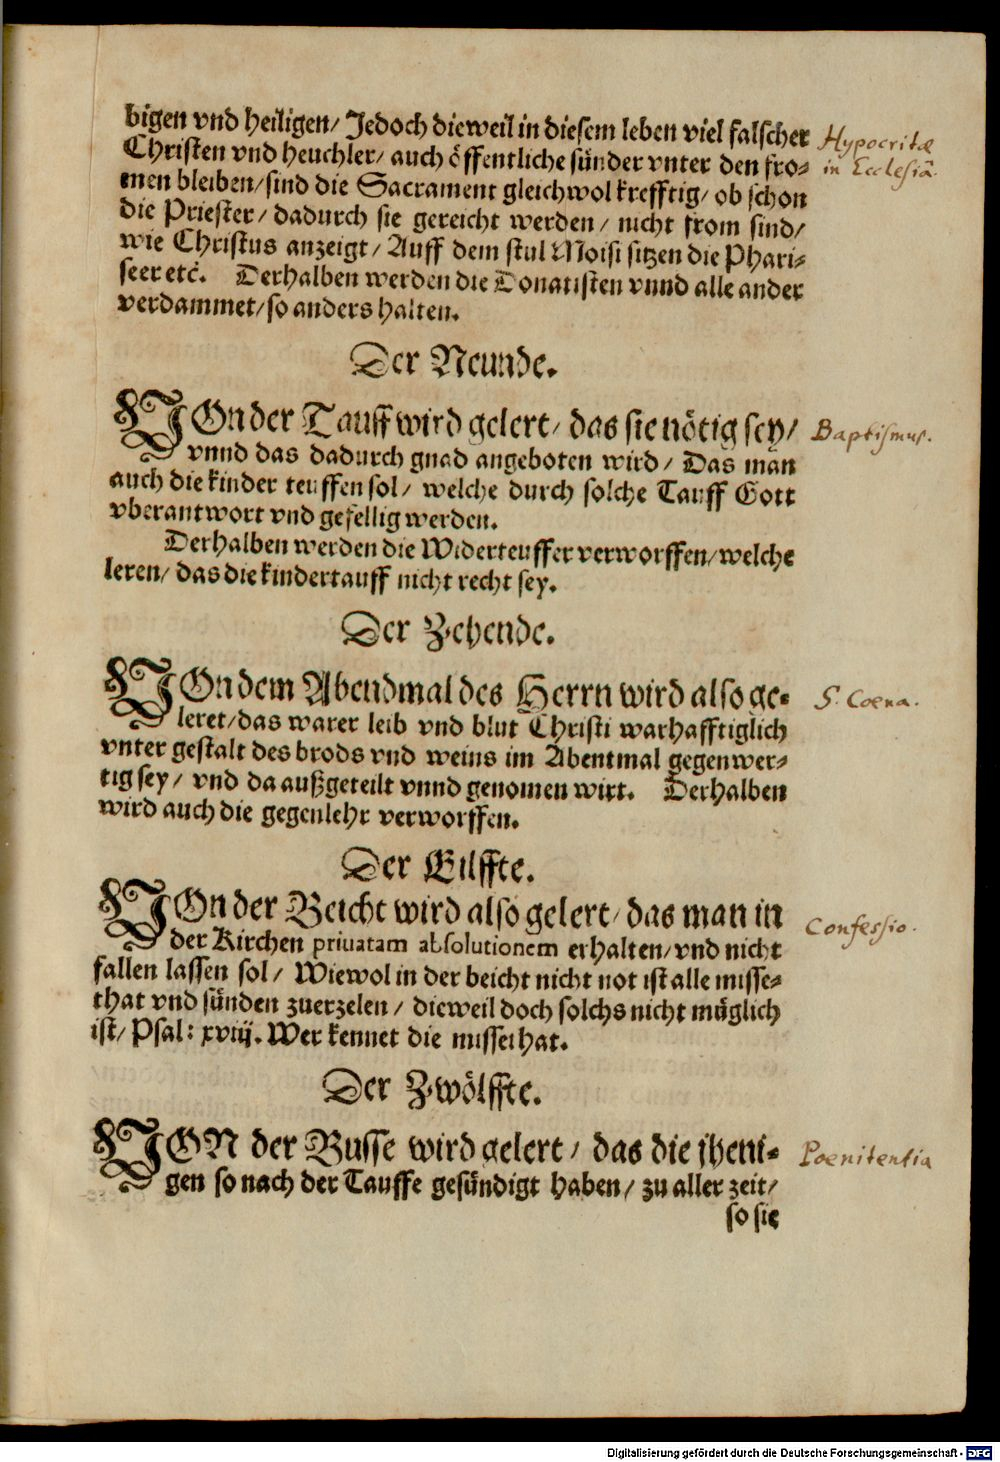 bigen vnd heiligen/ Jedoch dieweil in diesem leben viel falscher
Hypocritæ
Christen vnd heuchler/ auch öffentliche sünder vnter den fro-
in Ecclesiâ.
men bleiben/ sind die Sacrament gleichwol krefftig/ ob schon
die Priester/ dadurch sie gereicht werden/ nicht from sind/
wie Christus anzeigt/ Auff dem stul Moisi sitzen die Phari-
seer etc. Derhalben werden die Donatisten vnnd alle ander
verdammet/ so anders halten.
Der Neunde.
VOn der Tauff wird gelert/ das sie nötig sey/
Baptismus.
vnnd das dadurch gnad angeboten wird/ Das man
auch die kinder teuffen sol/ welche durch solche Tauff Gott
vberantwort vnd gefellig werden.
Derhalben werden die Widerteuffer verworffen/ welche
leren/ das die kindertauff nicht recht sey.
Der Zehende.
VOn dem Abendmal des Herrn wird also ge-
S. Coena.
leret/ das warer leib vnd blut Christi warhafftiglich
vnter gestalt des brods vnd weins im Abentmal gegenwer-
tig sey/ vnd da außgeteilt vnnd genomen wirt. Derhalben
wird auch die gegenlehr verworffen.
Der Eilffte.
VOn der Beicht wird also gelert/ das man in
Confessio.
der Kirchen priuatam absolutionem erhalten/ vnd nicht
fallen lassen sol/ Wiewol in der beicht nicht not ist alle misse-
that vnd sünden zuerzelen/ dieweil doch solchs nicht müglich
ist/ Psal: xviij. Wer kennet die missethat.
Der Zwölffte.
VON der Busse wird gelert/ das die jheni-
Poenitentia
gen so nach der Tauffe gesündigt haben/ zu aller zeit/
so sie
Digitalisierung gefördert durch die Deutsche Forschungsgemeinschaft - DFG